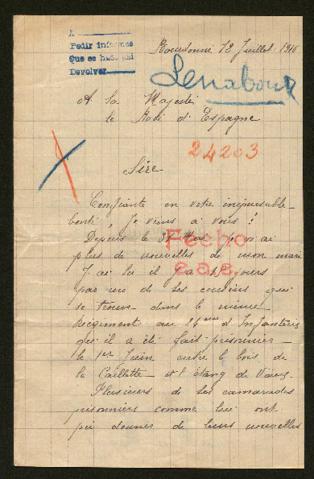 A
Pedir informes
Que se haga
Devolver
12 Juillet 1916
Lenabour
A Sa Majesté
le Roi d'Espagne
24203
Sire
Confiante en votre inépuisable
bonté, je viens à vous!
Depuis le 31 Mai je n'ai
plus de nouvelles de mon mari
J'ai su il y a jours
par un de ses cousins qui
se trouve dans le même
Régiment au d'Infanterie
qu'il a été fait prisonnier
le 1er Juin entre le bois de
la Caillette et l'étang de Vaux.
Plusieurs de ses camarades
prisonniers comme lui ont
pu donner de leurs nouvelles
Fecho